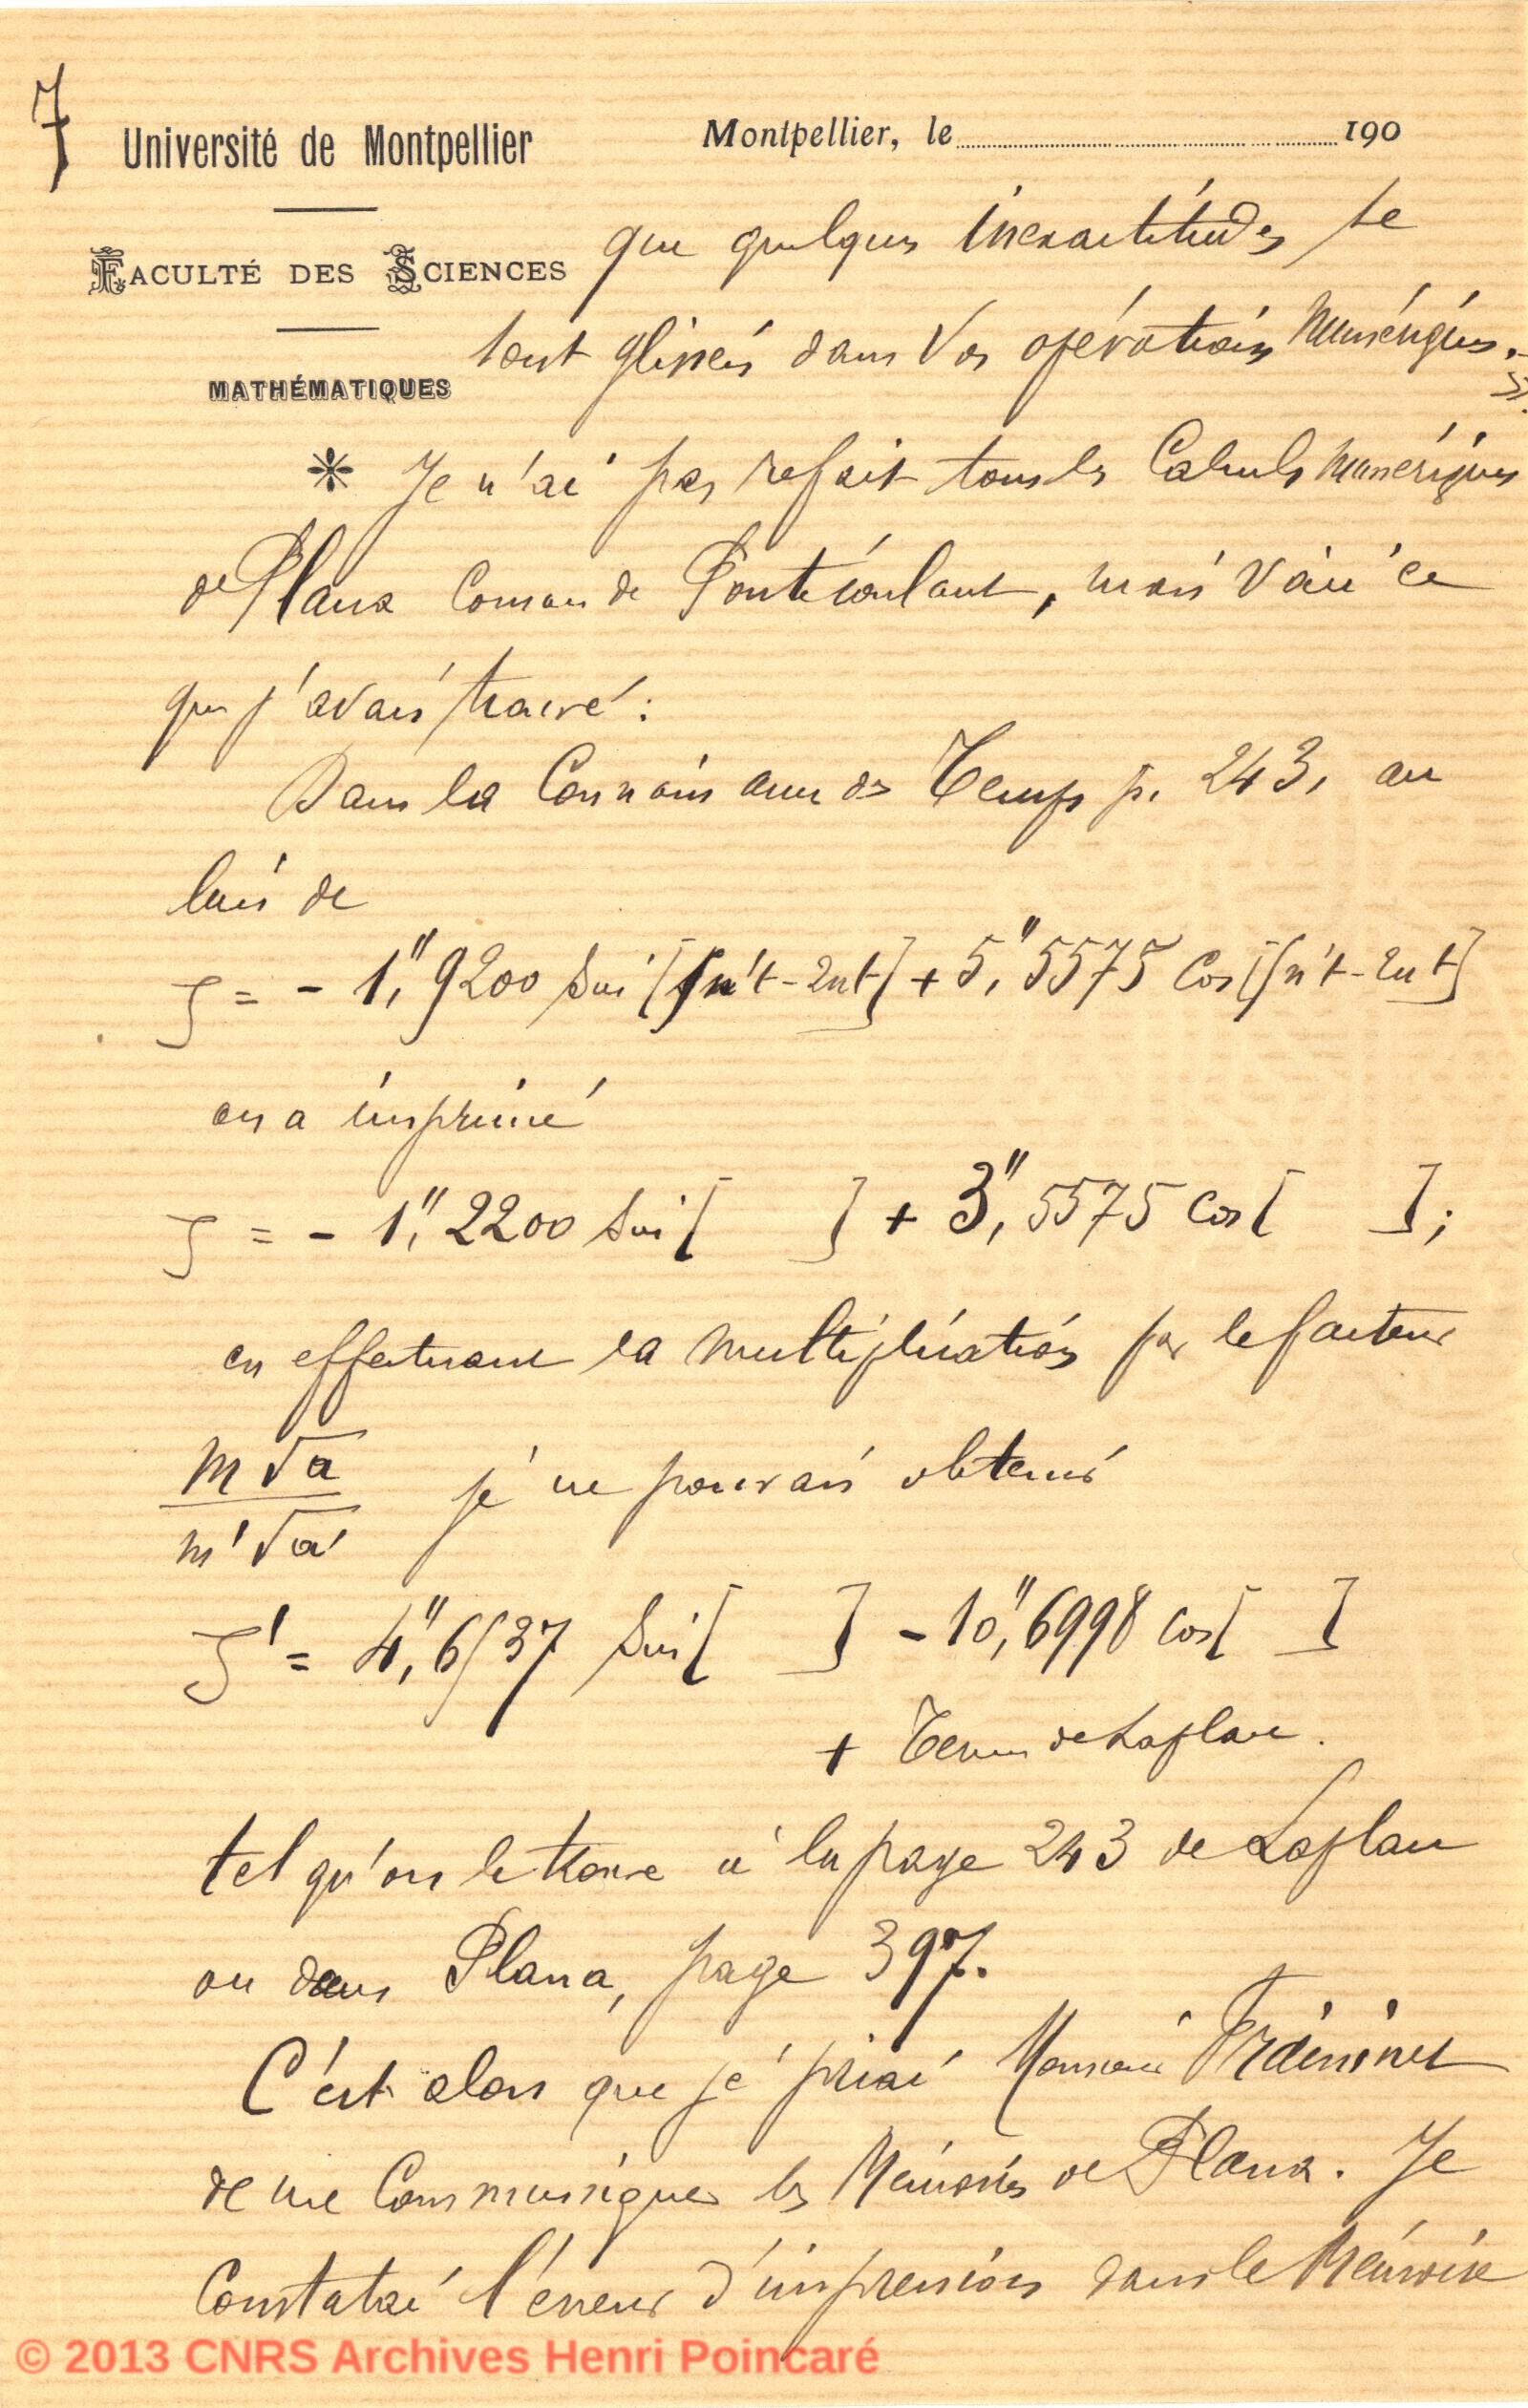 7
Université de Montpellier
Montpellier, le 190
FACULTÉ DES SCIENCES
MATHÉMATIQUES
que quelques inexactitudes se
sont glissées dans vos opérations numériques. »
* Je n'ai pas refait tous les calculs numériques
de Plana comme de Pontécoulant, mais voici ce
que j'avais trouvé :
Dans la Connaissance des Temps p. 243, au
lieu de
ζ = - 1,"9200 sin [5n't - 2nt] + 5,"5575 cos [5n't - 2nt]
on a imprimé
ζ = - 1,"2200 sin [ ] + 3,"5575 cos [ ] ;
en effectuant la multiplication par le facteur
m√a
m'√a' je ne pouvais obtenir
ζ' = 4,"6137 sin [ ] - 10,"6998 cos [ ]
+ Termes de Laplace.
tel qu'on le trouve à la page 243 de Laplace
ou dans Plana, page 397.
C'est alors que je priai Monsieur
de me communiquer les Mémoires de Plana. Je
constatai l'erreur d'impression dans le Mémoire
© 2013 CNRS Archives Henri Poincaré